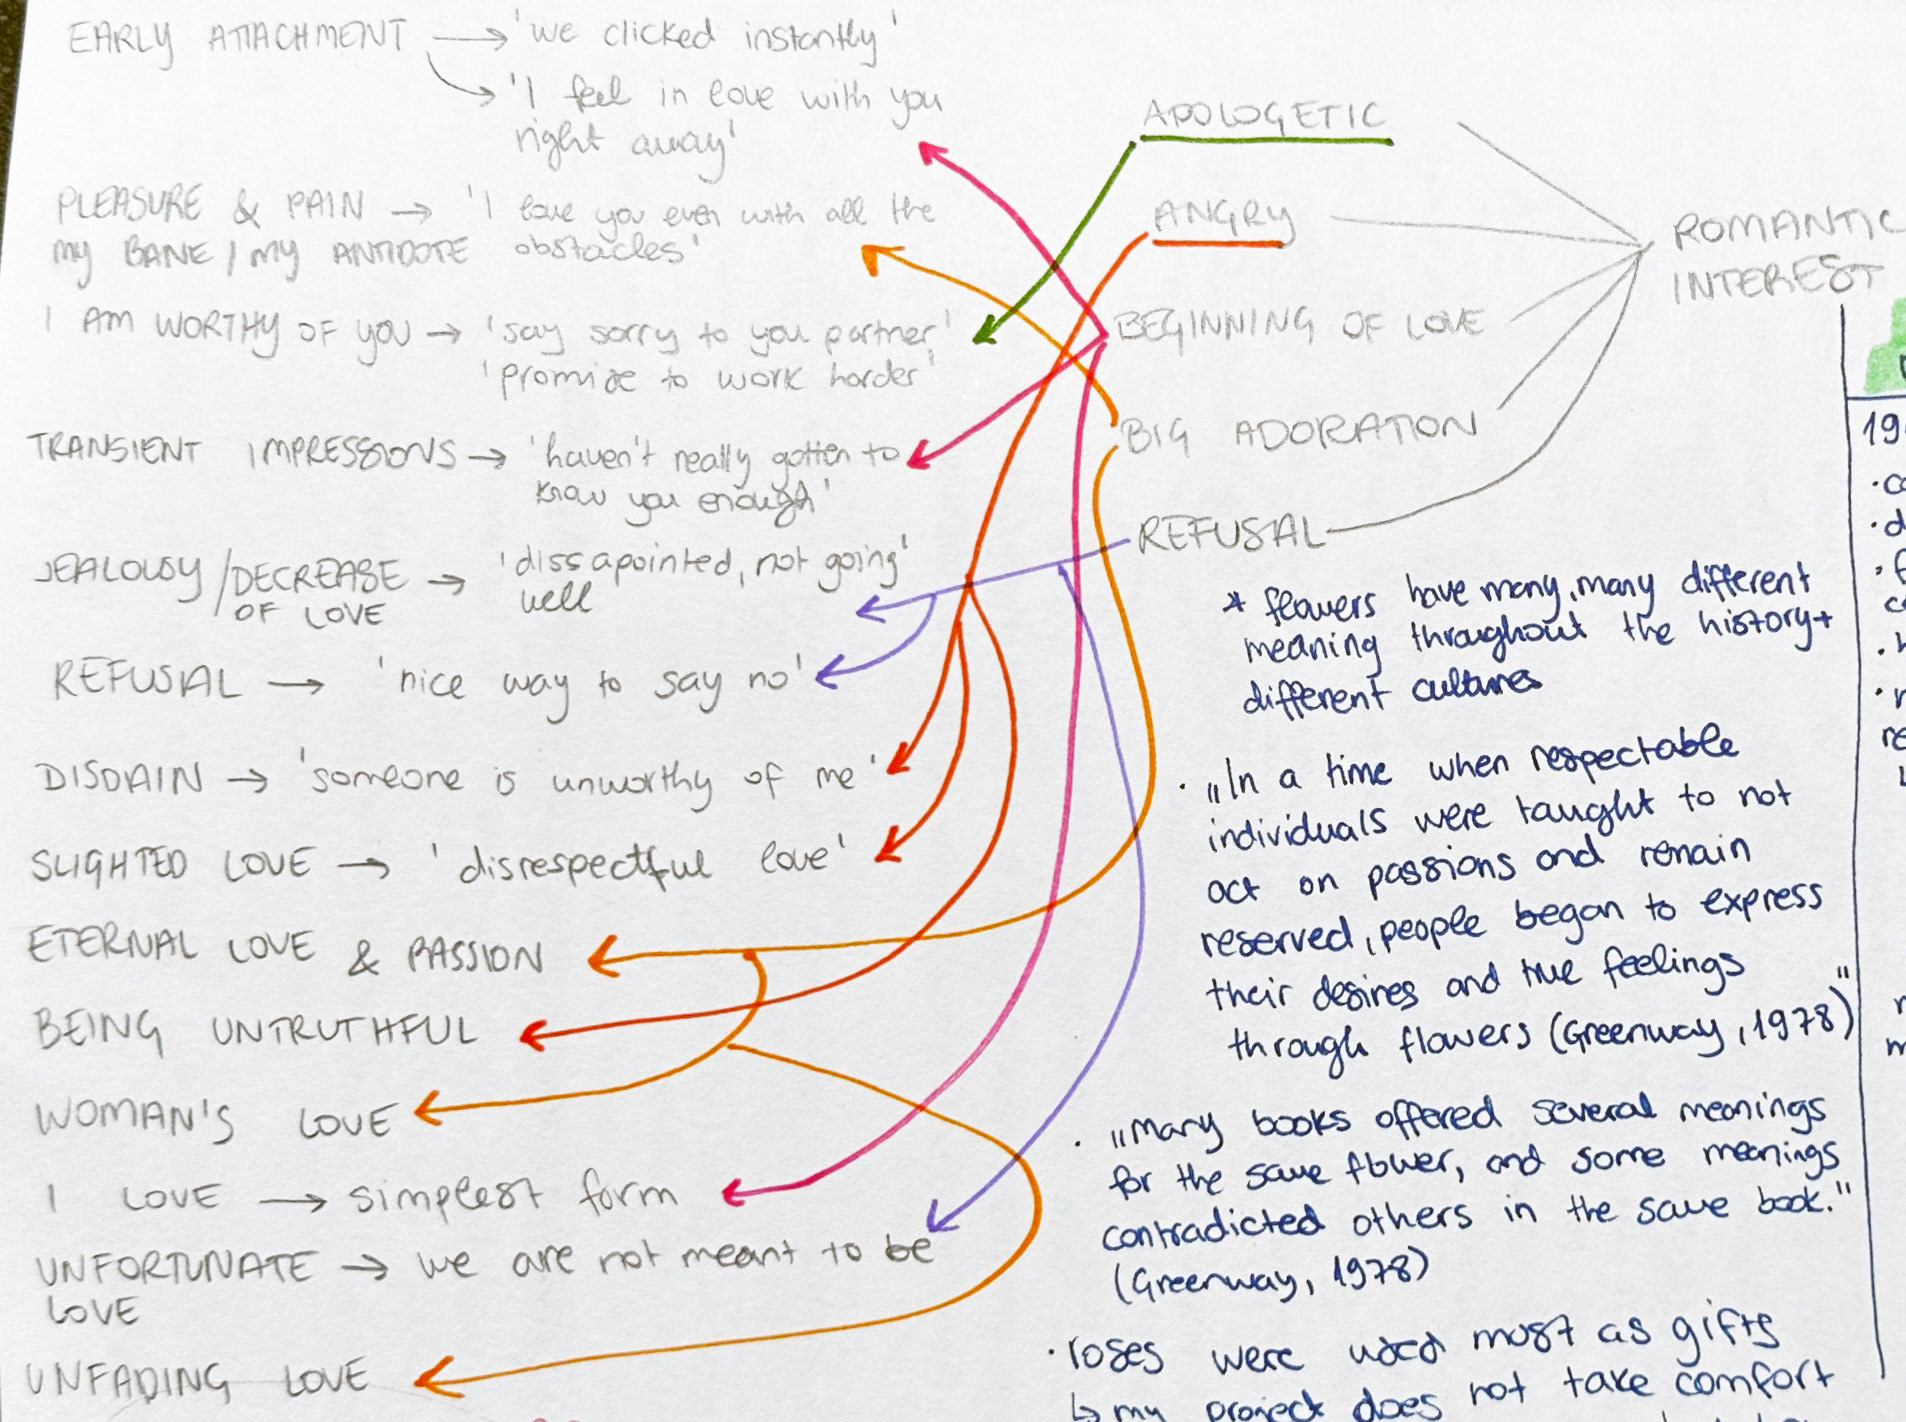 EARLY ATTACHMENT → 'we clicked instantly'
→ 'I feel in love with you
right away'
PLEASURE & PAIN → 'I love you even with all the
MY BANE / MY ANTIDOTE obstacles'
I AM WORTHY OF YOU → 'say sorry to you partner'
'promise to work harder'
TRANSIENT IMPRESSIONS → 'haven't really gotten to
know you enough'
JEALOUSY / DECREASE → 'dissapointed, not going'
OF LOVE well
REFUSAL → 'nice way to say no'
DISDAIN → 'someone is unworthy of me'
SLIGHTED LOVE → 'disrespectful love'
ETERNAL LOVE & PASSION
BEING UNTRUTHFUL
WOMAN'S LOVE
I LOVE → simplest form
UNFORTUNATE → we are not meant to be
LOVE
UNFADING LOVE
APOLOGETIC
ANGRY
BEGINNING OF LOVE
BIG ADORATION
REFUSAL
ROMANTIC
INTEREST
* flowers have many, many different
meaning throughout the history +
different cultures
· „In a time when respectable
individuals were taught to not
act on passions and remain
reserved, people began to express
their desires and true feelings
through flowers (Greenway, 1978)"
· „Many books offered several meanings
for the same flower, and some meanings
contradicted others in the same book."
(Greenway, 1978)
· roses were used most as gifts
↳ my project does not take comfort
19